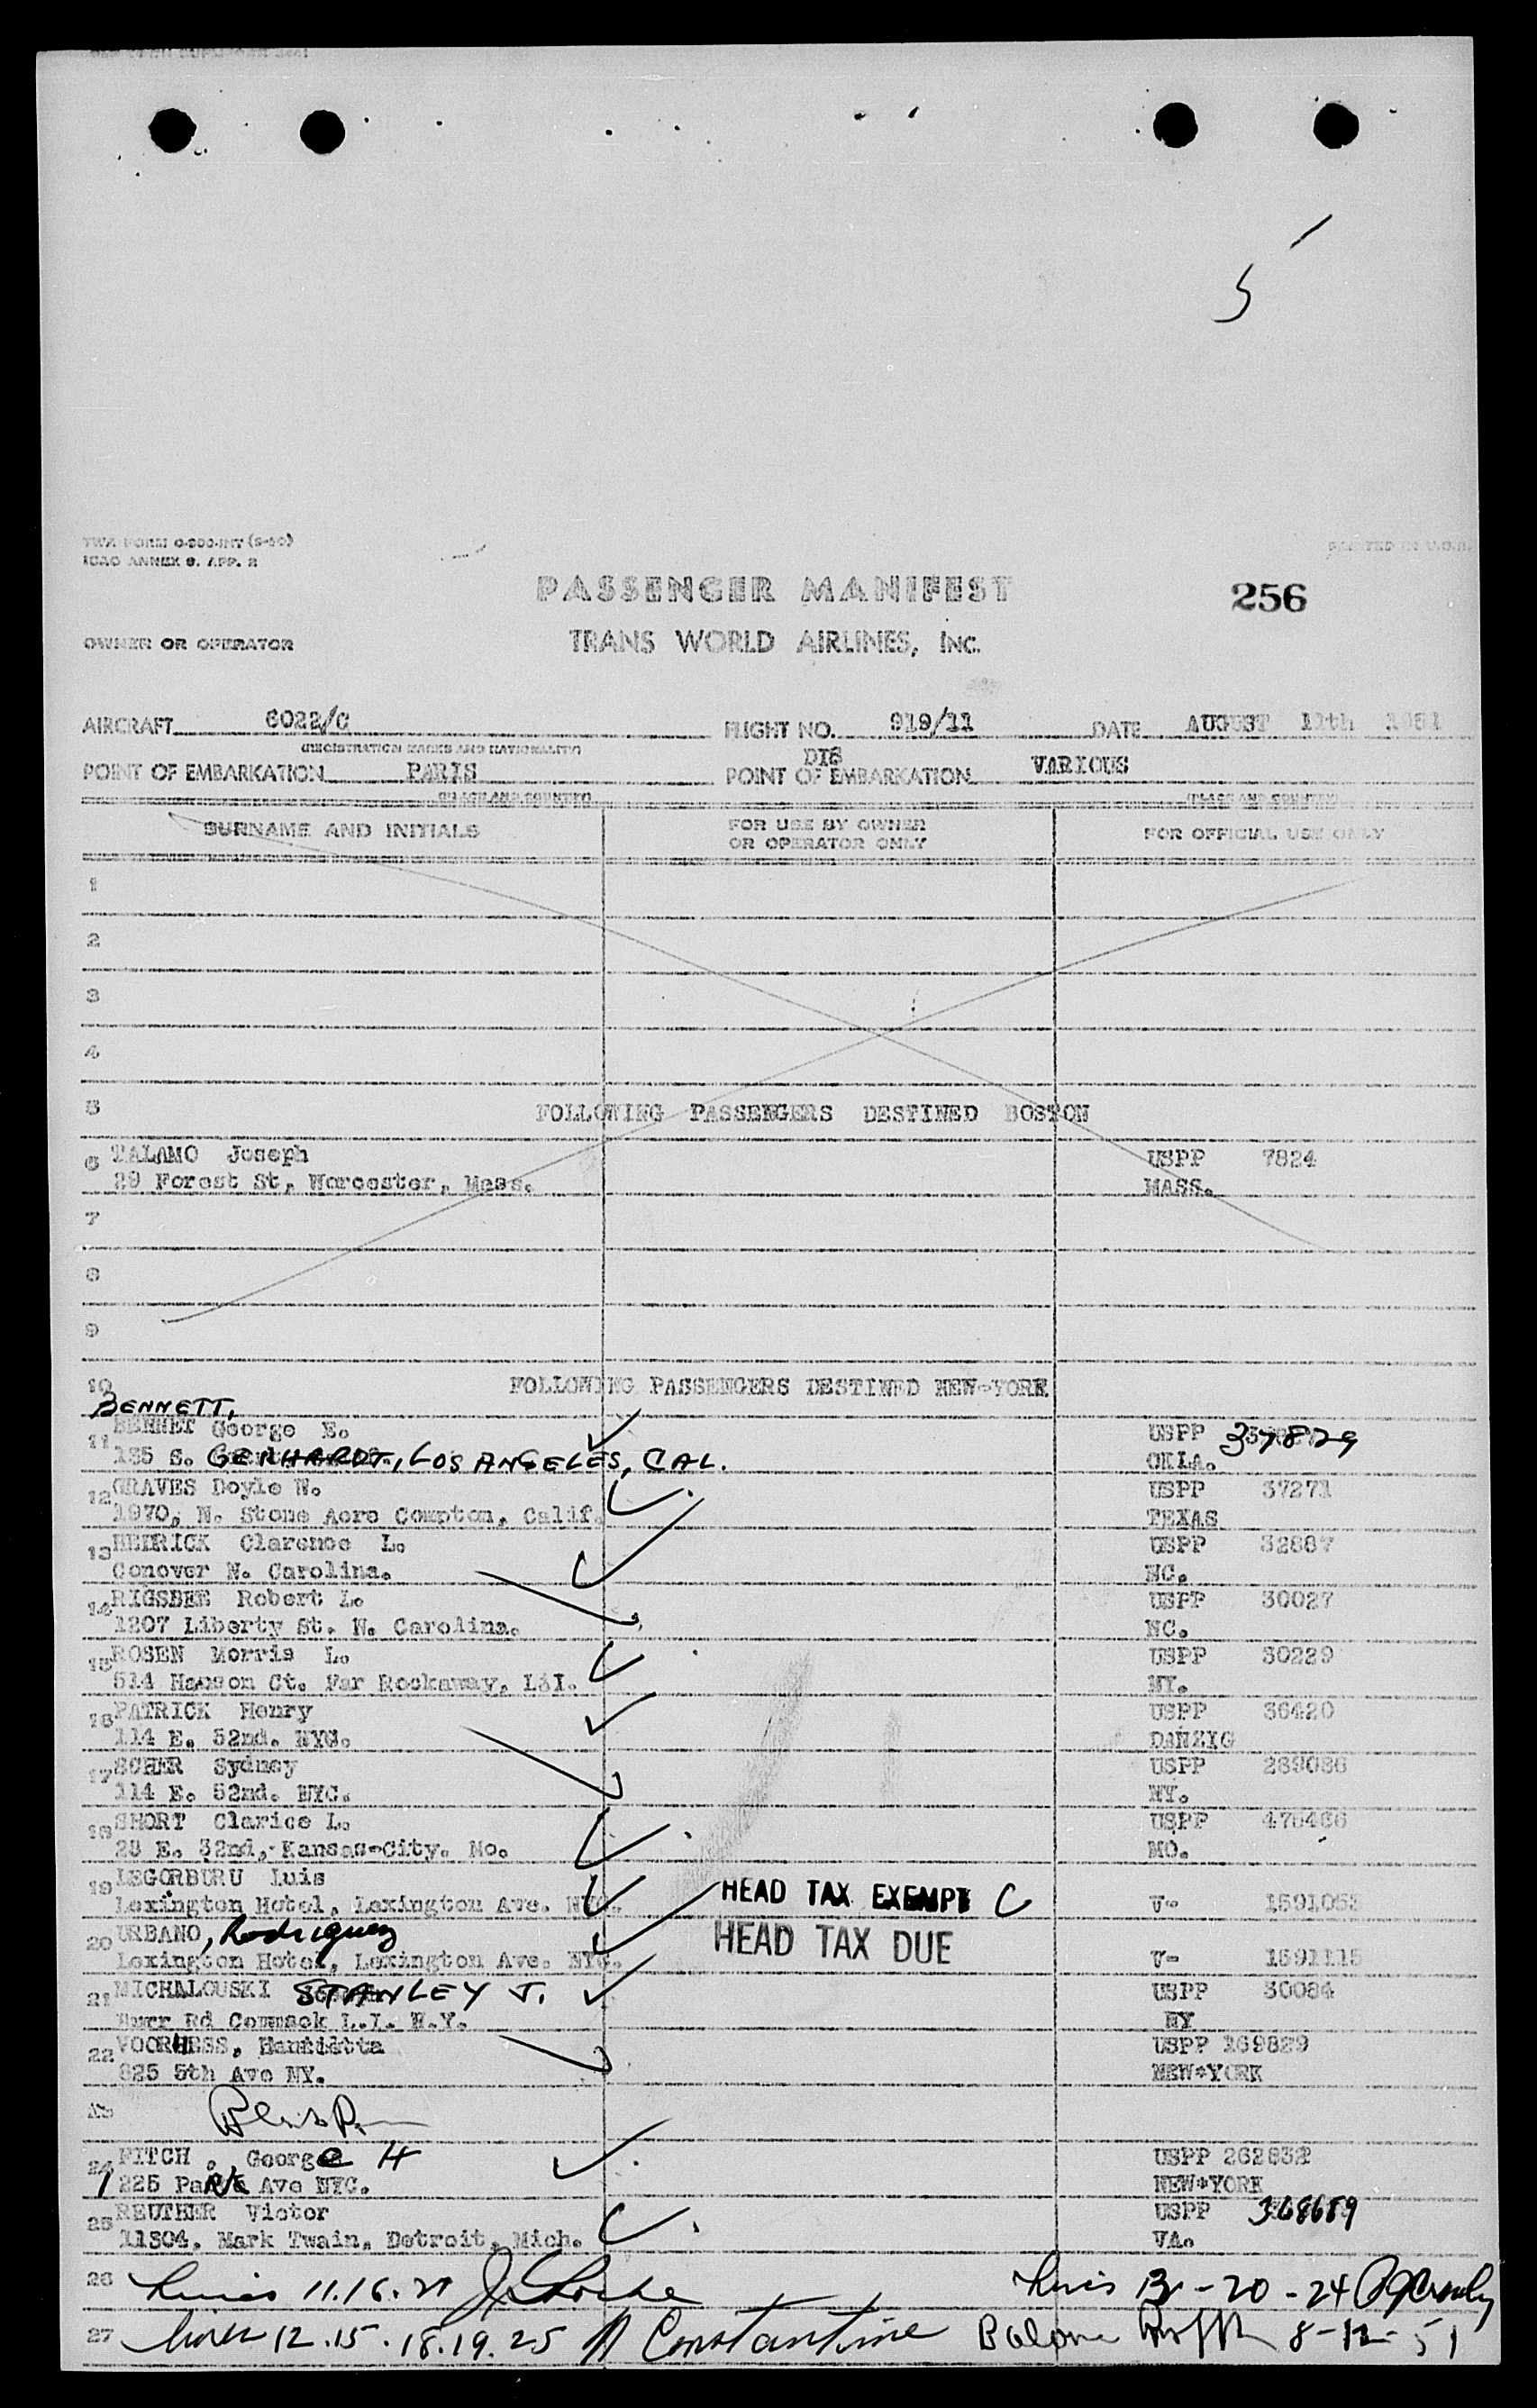 5
TWA FORM O-900-INT (5-50)
ICAO ANNEX 9. APP. 2
PRINTED IN U.S.A.
PASSENGER MANIFEST
256
OWNER OR OPERATOR
TRANS WORLD AIRLINES, INC.
AIRCRAFT 6022/C FLIGHT NO. 919/11 DATE AUGUST 11th 1951
(REGISTRATION MARKS AND NATIONALITY)
DIS
POINT OF EMBARKATION PARIS POINT OF EMBARKATION VARIOUS
(PLACE AND COUNTRY) (PLACE AND COUNTRY)
SURNAME AND INITIALS FOR USE BY OWNER OR OPERATOR ONLY FOR OFFICIAL USE ONLY
1
2
3
4
5 FOLLOWING PASSENGERS DESTINED BOSTON
6 TALAMO Joseph USPP 7824
29 Forest St, Worcester, Mass. MASS.
7
8
9
10 FOLLOWING PASSENGERS DESTINED NEW-YORK
BENNETT,
11 BENNET George E. USPP 37829
135 S. GERHARDT, LOS ANGELES, CAL. OKLA.
12 GRAVES Doyle N. USPP 37271
1970, N. Stone Acre Compton, Calif. TEXAS
13 HEIRICK Clarence L. USPP 32887
Conover N. Carolina. NC.
14 RIGSBEE Robert L. USPP 30027
1207 Liberty St. N. Carolina. NC.
15 ROSEN Morris L. USPP 30229
514 Hanson Ct. Far Rockaway, L.I. NY.
16 PATRICK Henry USPP 36420
114 E. 52nd. NYC. DANZIG
17 SCHER Sydney USPP 289086
114 E. 52nd. NYC. NY.
18 SHORT Clarice L. USPP 475486
28 E. 32nd, Kansas-City. Mo. MO.
19 LEGORBURU Luis
Lexington Hotel, Lexington Ave. NYC. HEAD TAX EXEMPT C V- 1591053
20 URBANO, Rodriguez HEAD TAX DUE
Lexington Hotel, Lexington Ave. NYC. V- 1591115
21 MICHALOUSKI STANLEY J. USPP 30084
Burr Rd Commack L.I. N.Y. NY
22 VOORHESS, Henrietta USPP 169829
825 5th Ave NY. NEW*YORK
23
24 FITCH, George H USPP 262832
1225 Park Ave NYC. NEW*YORK
25 REUTHER Victor USPP 368689
11304, Mark Twain, Detroit, Mich. VA.
26 Lines 11.16.21 Lines 13 - 20 - 24
27 Lines 12.15.18.19.25 Constantine 8-12-51